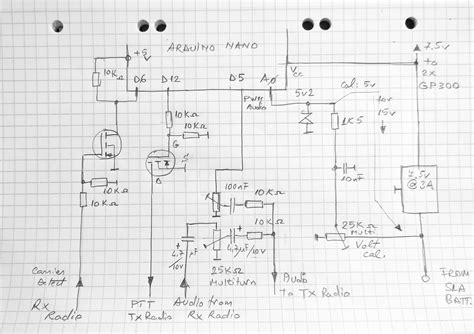 ARDUINO NANO
+5V
10KΩ
D6
D12
D5
A0
Vcc
7.5V
to
2x
GP300
Cal: 5V
5V2
10V
15V
Audio
10KΩ
1K5
10KΩ
G
S
D
10KΩ
10nF
7.5V
@3A
100nF
10KΩ
R
10KΩ
25KΩ
Multi
Volt
Cal.
4,7µF
/10V
4,7µF/10V
25KΩ
Multiturn
Carrier
detect
Rx
Radio
PTT
TX Radio
Audio from
Rx Radio
Audio
To Tx Radio
FROM
SLA
BATT.